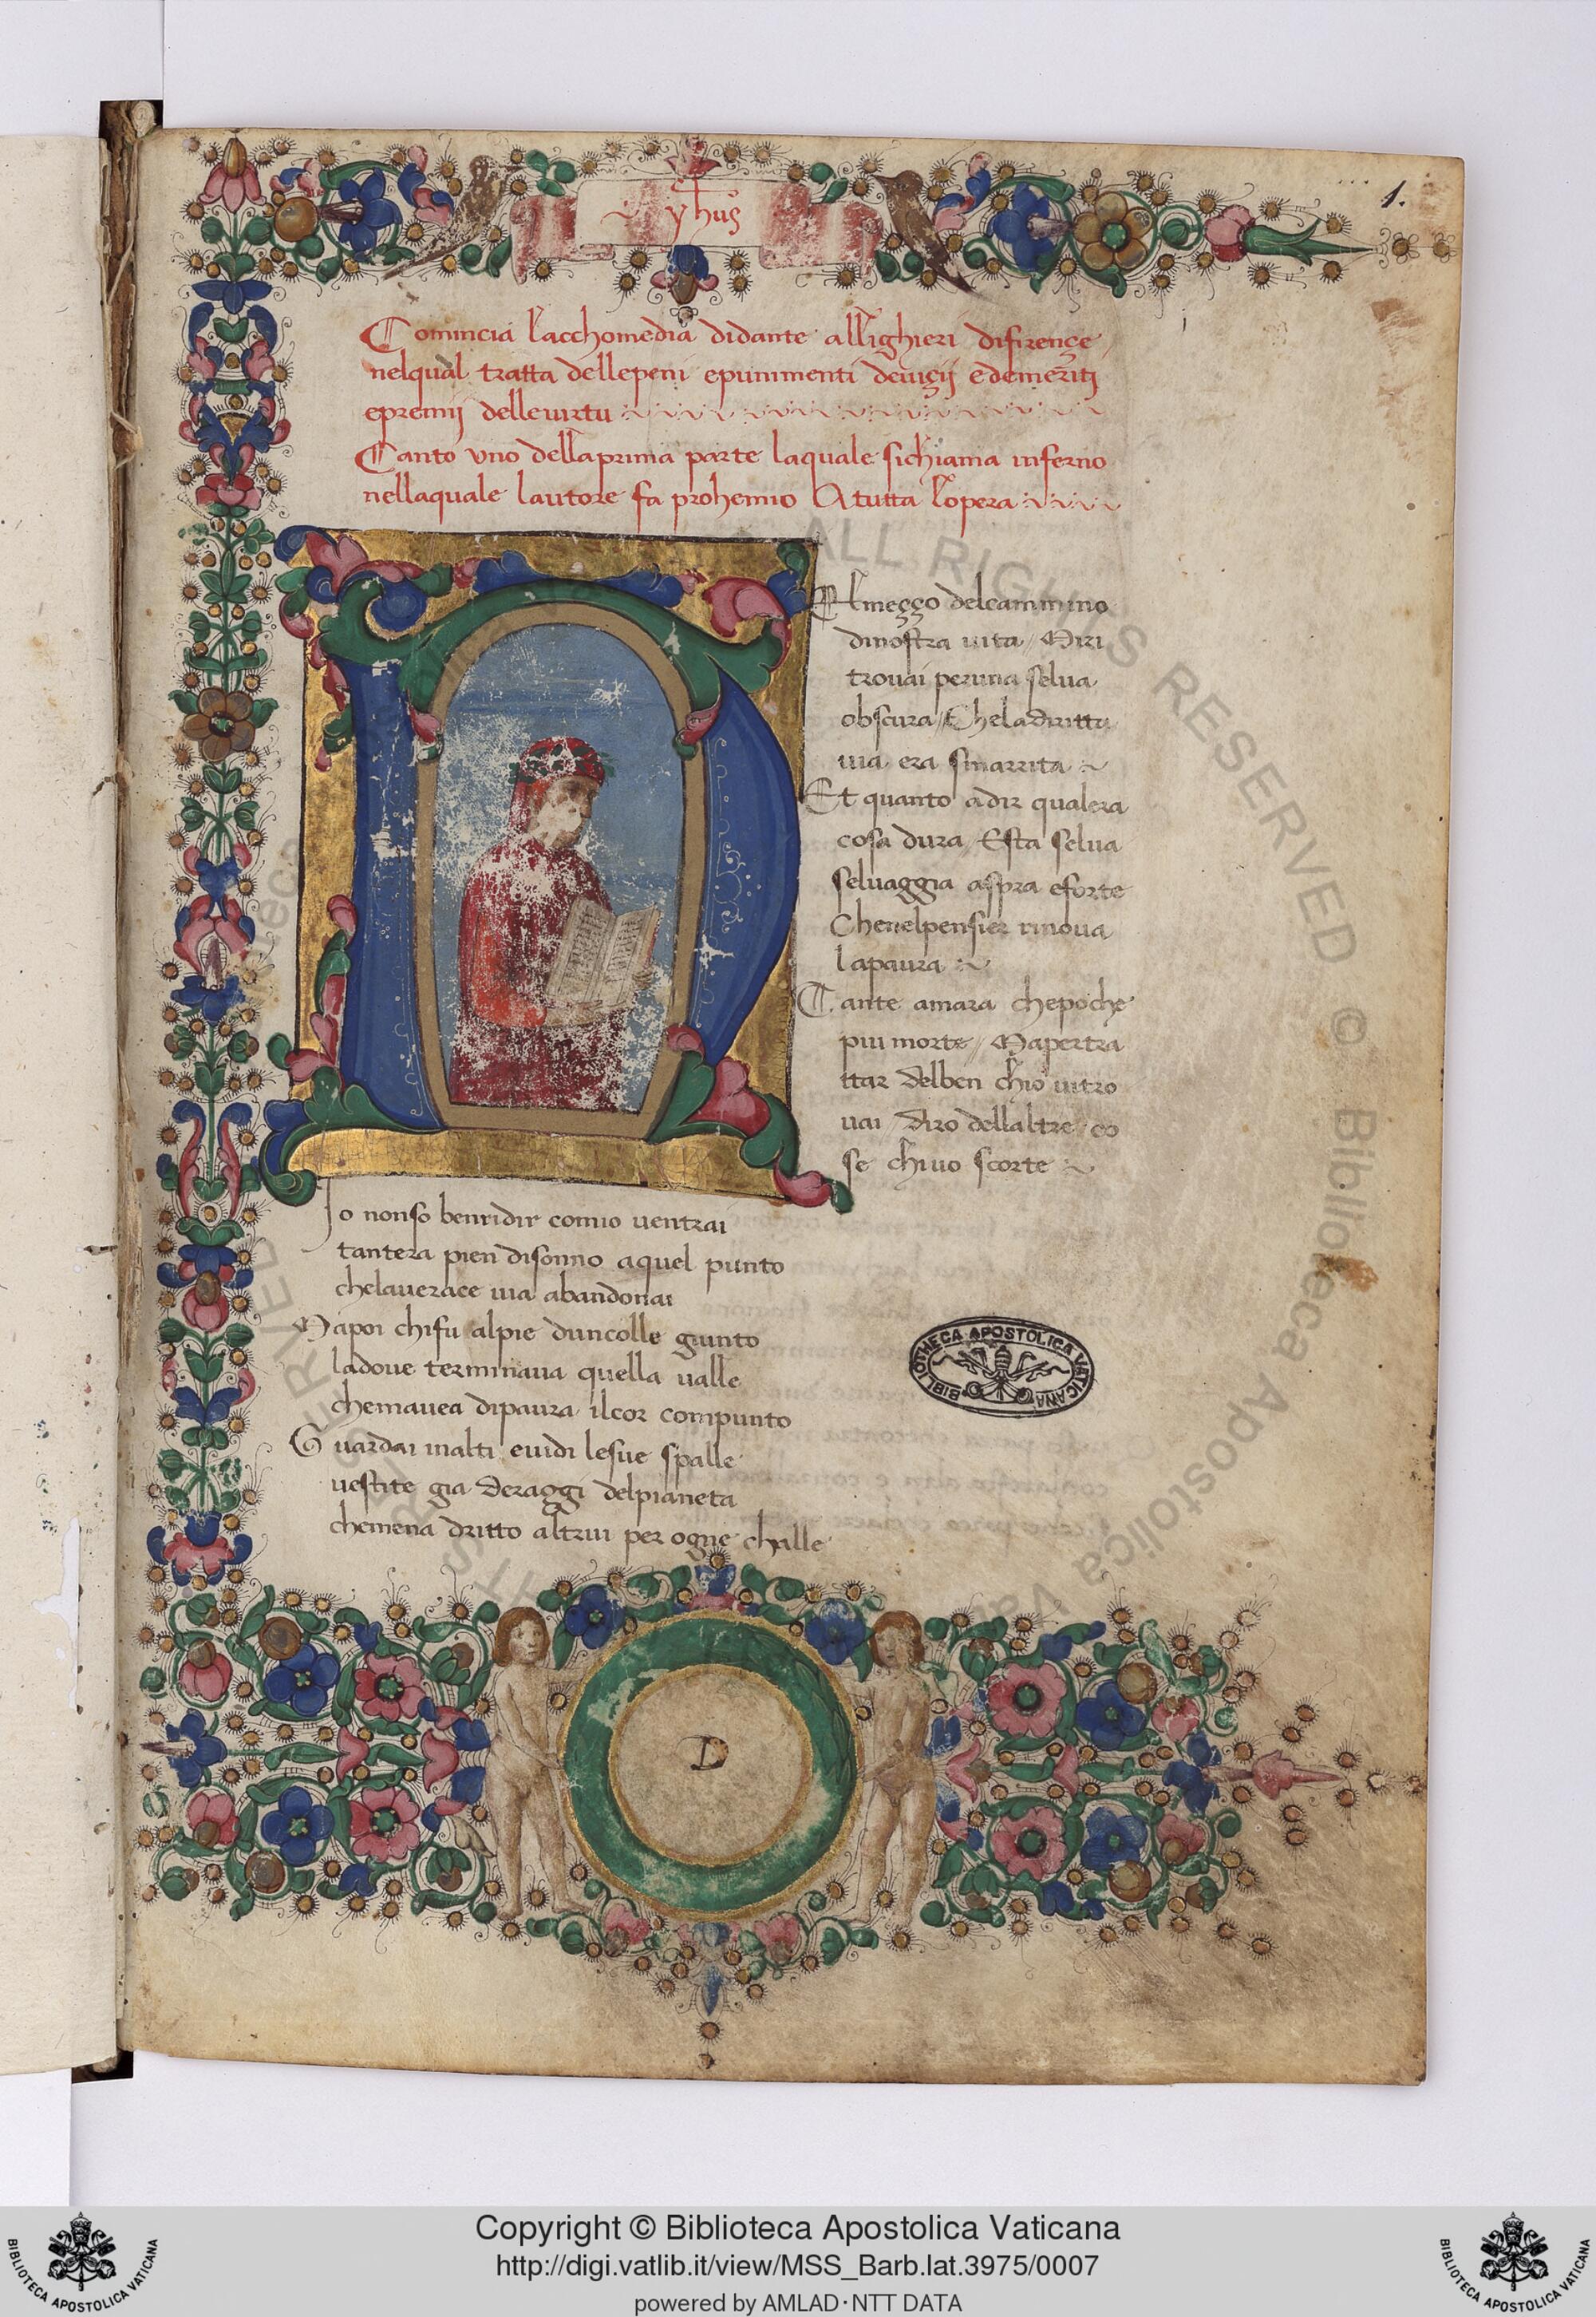 1.
yhus
Comincia lacchomedia didante allighieri difirençe
nelqual tratta dellepeni epunimenti deuiçij edemeriti
epremij delleuirtu
Canto uno dellaprima parte laquale sichiama inferno
nellaquale lautore fa prohemio Atutta lopera
Elmeçço delcammino
dinostra uita / Miri
trouai peruna selua
obscura // Cheladiritta
uia era smarrita
Et quanto adir qualera
cosa dura / Esta selua
seluaggia aspra eforte
Chenelpensier rinoua
lapaura
Tante amara chepoche
piu morte // Mapertra
ttar delben chio uitro
uai / Diro dellaltre co
se chiuo scorte
Io nonso benridir comio uentrai
tantera pien disonno aquel punto
chelauerace uia abandonai
Mapoi chifu alpie duncolle giunto
ladoue terminaua quella ualle
chemauea dipaura ilcor compunto
Guardai inalti euidi lesue spalle
uestite gia deraggi delpianeta
chemena dritto altrui per ogne challe
BIBLIOTHECA APOSTOLICA VATICANA
D
ALL RIGHTS RESERVED © Biblioteca Apostolica Va
Copyright © Biblioteca Apostolica Vaticana
http://digi.vatlib.it/view/MSS_Barb.lat.3975/0007
powered by AMLAD·NTT DATA
BIBLIOTECA APOSTOLICA VATICANA
BIBLIOTECA APOSTOLICA VATICANA